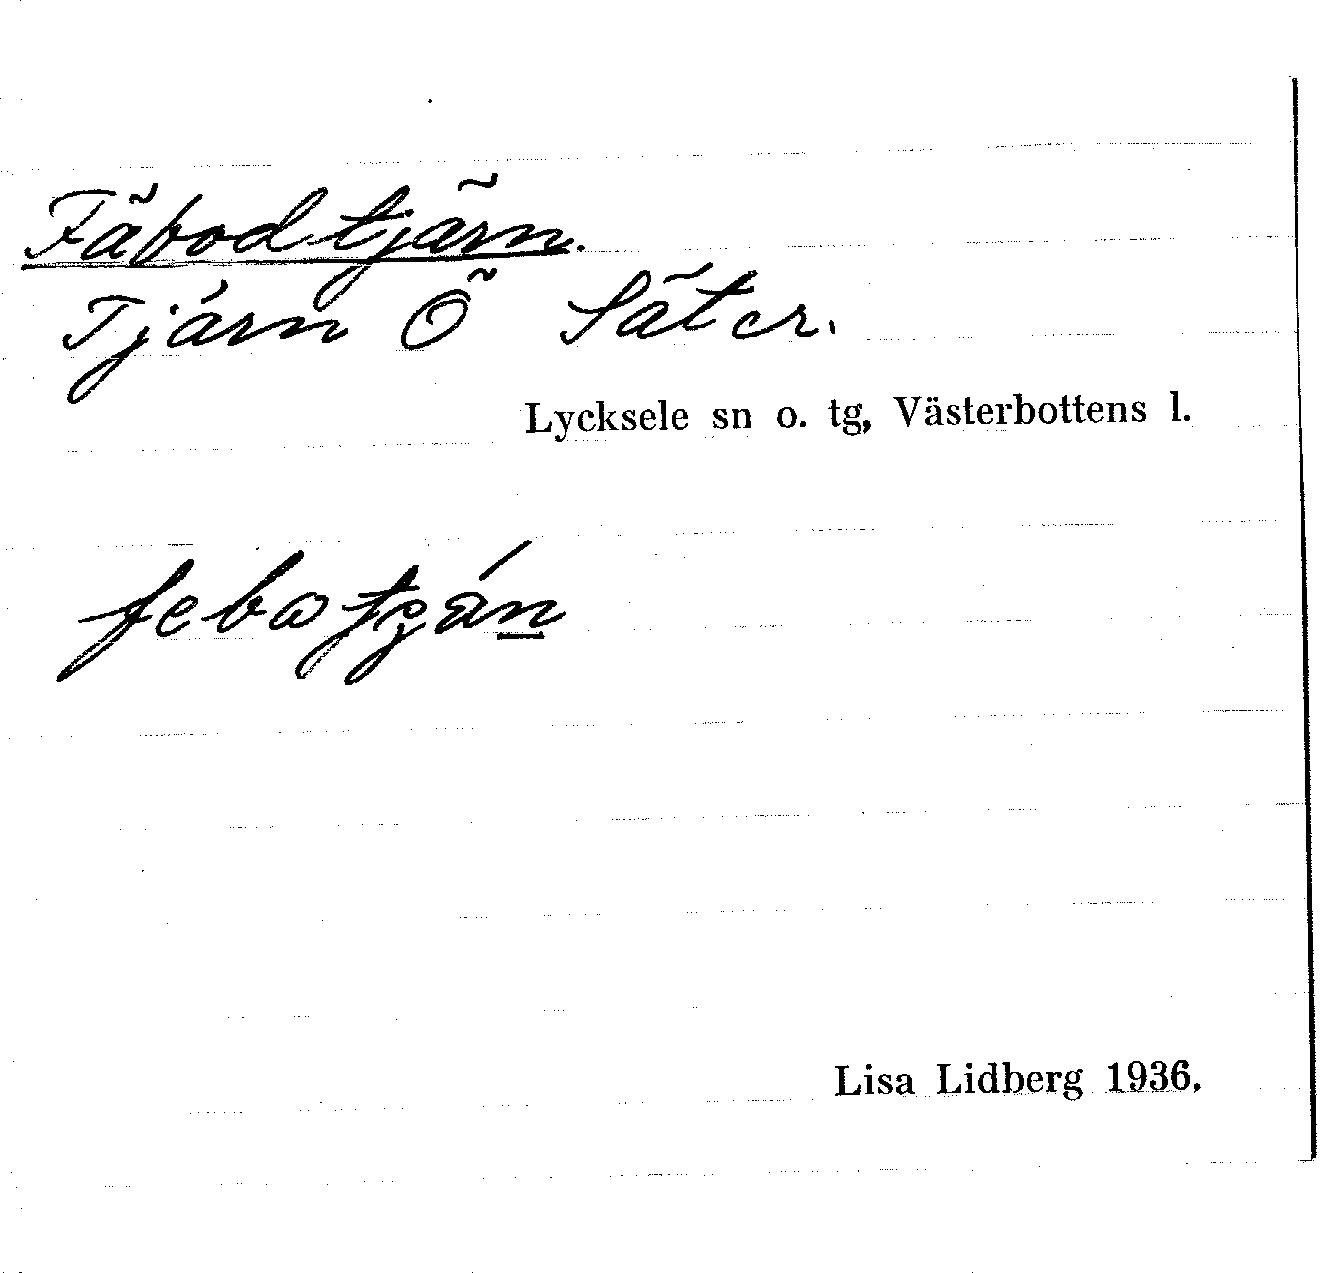 Fäbodtjärn.
Tjärn Ö Säter.
Lycksele sn o. tg, Västerbottens l.
Lisa Lidberg 1936.